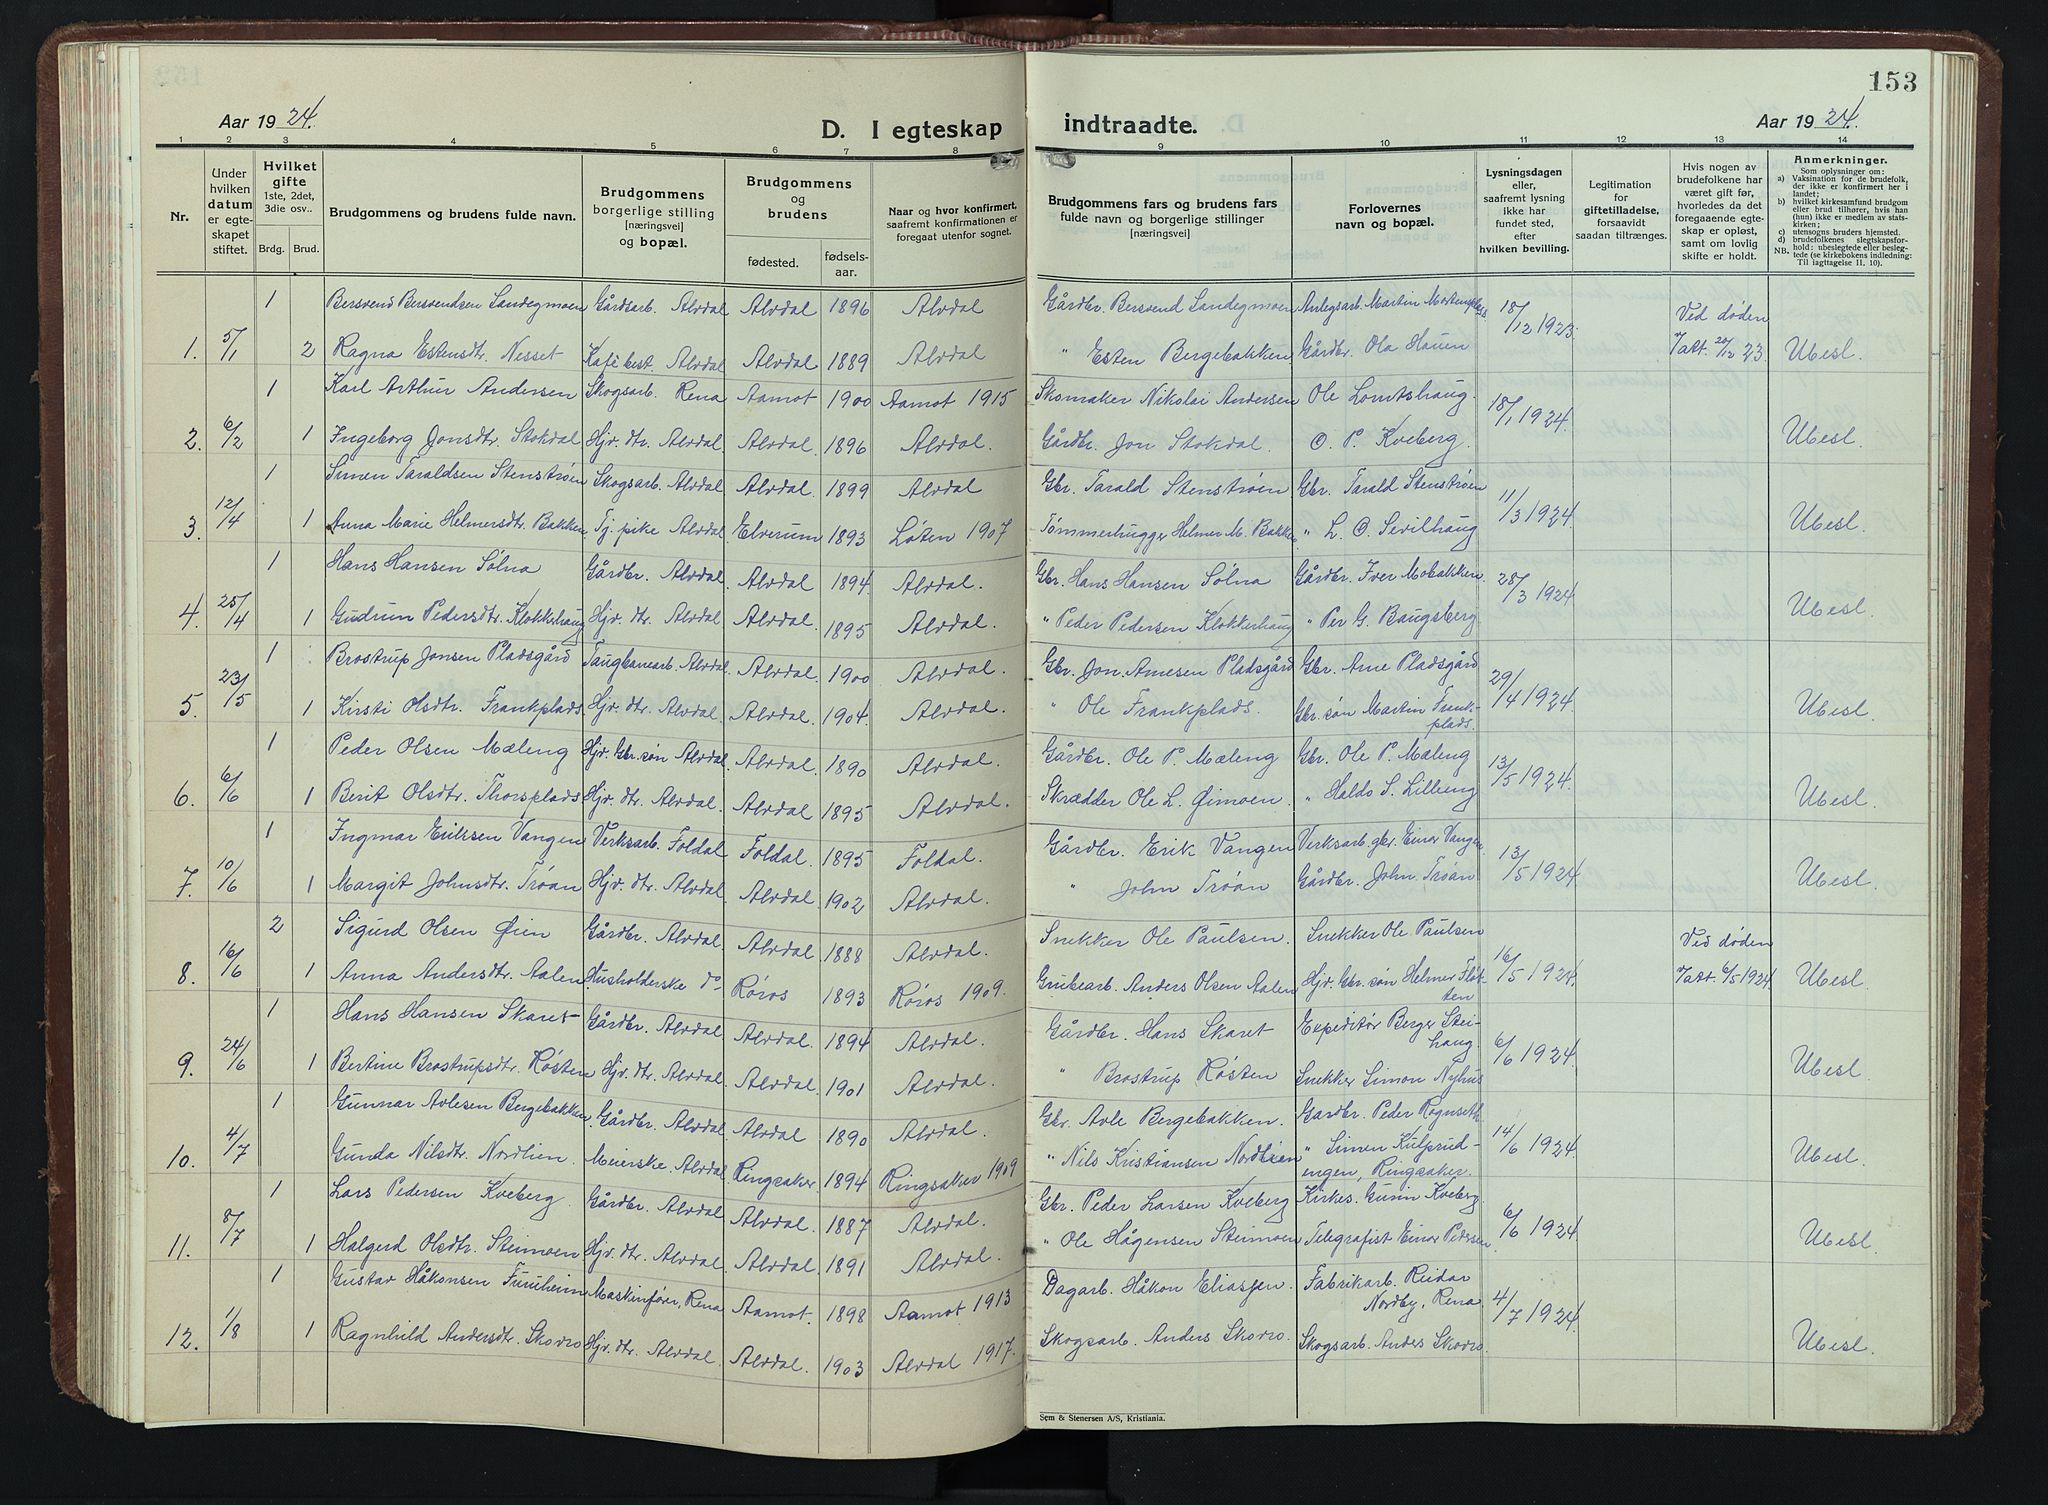 153
Aar 1924.
D. I egteskap indtraadte.
Aar 1924.
1 2 3 4 5 6 7 8 9 10 11 12 13 14
Nr.
Under hvilken datum er egteskapet stiftet.
Hvilket gifte 1ste, 2det, 3die osv..
Brdg. Brud.
Brudgommens og brudens fulde navn.
Brudgommens borgerlige stilling [næringsvei] og bopæl.
Brudgommens og brudens
fødested. fødselsaar.
Naar og hvor konfirmert, saafremt konfirmationen er foregaat utenfor sognet.
Brudgommens fars og brudens fars fulde navn og borgerlige stillinger [næringsvei]
Forlovernes navn og bopæl.
Lysningsdagen eller, saafremt lysning ikke har fundet sted, efter hvilken bevilling.
Legitimation for giftetilladelse, forsaavidt saadan tiltrænges.
Hvis nogen av brudefolkene har været gift før, hvorledes da det foregaaende egteskap er opløst, samt om lovlig skifte er holdt.
Anmerkninger.
Som oplysninger om:
a) Vaksination for de brudefolk, der ikke er konfirmert her i landet;
b) hvilket kirkesamfund brudgom eller brud tilhører, hvis han (hun) ikke er medlem av statskirken;
c) utensogns bruders hjemsted.
d) brudefolkenes slegtskapsforhold: ubeslegtede eller beslegtede (se kirkebokens indledning: NB. Til iagttagelse II. 10).
1 Bersvend Bersvendsen Sandegmoen Gårdsarb. Alvdal Alvdal 1896 Alvdal Gårdbr. Bersvend Sandegmoen Anlegsarb. Martin Mortensplass 18/12 1923. Ved døden
1. 5/1 2 Ragna Estensdtr. Nesset Kafébest. Alvdal Alvdal 1889 Alvdal " Esten Bergebakken Gårdbr. Ola Hauen 23. Ubesl.
1 Karl Arthur Andersen Skogsarb. Rena Aamot 1900 Aamot 1915 Skomaker Nikolai Andersen Ole Lomtshaug. 18/1 1924.
2. 6/2 1 Ingeborg Jonsdtr. Stokdal Hjv. dtr. Alvdal Alvdal 1896 Alvdal. Gårdbr. Jon Stokdal. O. P. Kveberg. Ubesl.
1 Simen Taraldsen Stenstrøen Skogsarb. Alvdal Alvdal. 1899 Alvdal Gbr. Tarald Stenstrøen Gbr. Tarald Stenstrøen 11/3 1924.
3. 12/4 1 Anna Marie Helmersdtr. Bakken Tj. pike Alvdal Elverum 1893 Løten 1907 Tømmerhugger Helmer M. Bakken " L. O. Sevilhaug Ubesl.
1 Hans Hansen Sølna Gårdbr. Alvdal. Alvdal 1894. Alvdal. Gbr. Hans Hansen Sølna Gårdbr. Iver Mobakken. 28/3 1924.
4. 25/4 1 Gudrun Pedersdtr. Klokkerhaug Hjv. dtr. Alvdal Alvdal. 1895 Alvdal. " Peder Pedersen Klokkerhaug " Per G. Baugsberg Ubesl.
1 Brostrup Jonsen Pladsgård Taugbanearb. Alvdal Alvdal. 1900 Alvdal. Gbr. Jon Arnesen Pladsgård Gbr. Arne Pladsgård 29/4 1924.
5. 23/5 1 Kirsti Olsdtr. Frankplads. Hjv. dtr. Alvdal. Alvdal 1904. Alvdal. " Ole Frankplads. Gbr. søn Martin Frankplads. Ubesl.
1 Peder Olsen Mæleng Hjv. Gbr. søn Alvdal Alvdal. 1890 Alvdal. Gårdbr. Ole P. Mæleng Gbr. Ole P. Mæleng 13/5 1924.
6. 6/6 1 Berit Olsdtr. Thorsplads Hjv. dtr. Alvdal. Alvdal 1895 Alvdal. Skrædder Ole L. Øimoen. " Haldo S. Lilleeng Ubesl.
1 Ingmar Eriksen Vangen Verksarb. Foldal Foldal. 1895 Foldal. Gårdbr. Erik Vangen Verksarb. gbr. Einar Vangen 13/5 1924.
7. 10/6 1 Margit Johnsdtr. Trøan Hjv. dtr. Alvdal Alvdal 1902 Alvdal. " John Trøan Gårdbr. John Trøan Ubesl.
2 Sigurd Olsen Øien Gårdbr. Alvdal. Alvdal 1888 Alvdal. Snekker Ole Paulsen. Snekker Ole Paulsen 16/5 1924. Ved døden
8. 16/6 1 Anna Andersdtr. Aalen Husholderske do Røros 1893 Røros 1909. Grubearb. Anders Olsen Aalen Hjv. Gbr. søn Helmer Fløtten 6/5 1924 Ubesl.
1 Hans Hansen Skaret Gårdbr. Alvdal. Alvdal. 1894 Alvdal. Gårdbr. Hans Skaret Expeditør Berger Steihaug 6/6 1924.
9. 24/6 1 Bertine Brostrupsdtr. Røsten Hjv. dtr. Alvdal. Alvdal. 1901 Alvdal. " Brostrup Røsten Snekker Simon Nyhus Ubesl.
1 Gunnar Avlesen Bergebakken. Gårdbr. Alvdal. Alvdal 1890 Alvdal. Gbr. Avle Bergebakken. Gardbr. Peder Rognseth 14/6 1924
10. 4/7 Gunda Nilsdtr. Nordlien. Meierske Alvdal Ringsaker. 1894 Ringsaker 1909 " Nils Kristiansen Nordlien " Simen Kulsrudengen, Ringsaker. Ubesl.
1 Lars Pedersen Kveberg Gårdbr. Alvdal Alvdal. 1887 Alvdal. Gbr. Peder Larsen Kveberg Kirkes. Gunn Kveberg. 6/6 1924
11. 8/7 1 Halgerd Olsdtr. Steimoen Hjv. dtr. Alvdal. Alvdal. 1891 Alvdal. " Ole Hågensen Steimoen Telegrafist Einar Pedersen. Ubesl.
1 Gustav Håkonsen Furuheim Maskinfører, Rena Aamot. 1898 Aamot. 1913 Dagarb. Håkon Eliassen. Fabrikarb. Reidar Nordby, Rena 4/7 1924.
12. 1/8 1 Ragnhild Andersdtr. Skovro Hjv. dtr. Alvdal. Alvdal. 1903 Alvdal 1917. Skogsarb. Anders Skovro. Skogsarb. Anders Skovro. Ubesl.
Sem & Stenersen A/S, Kristiania.